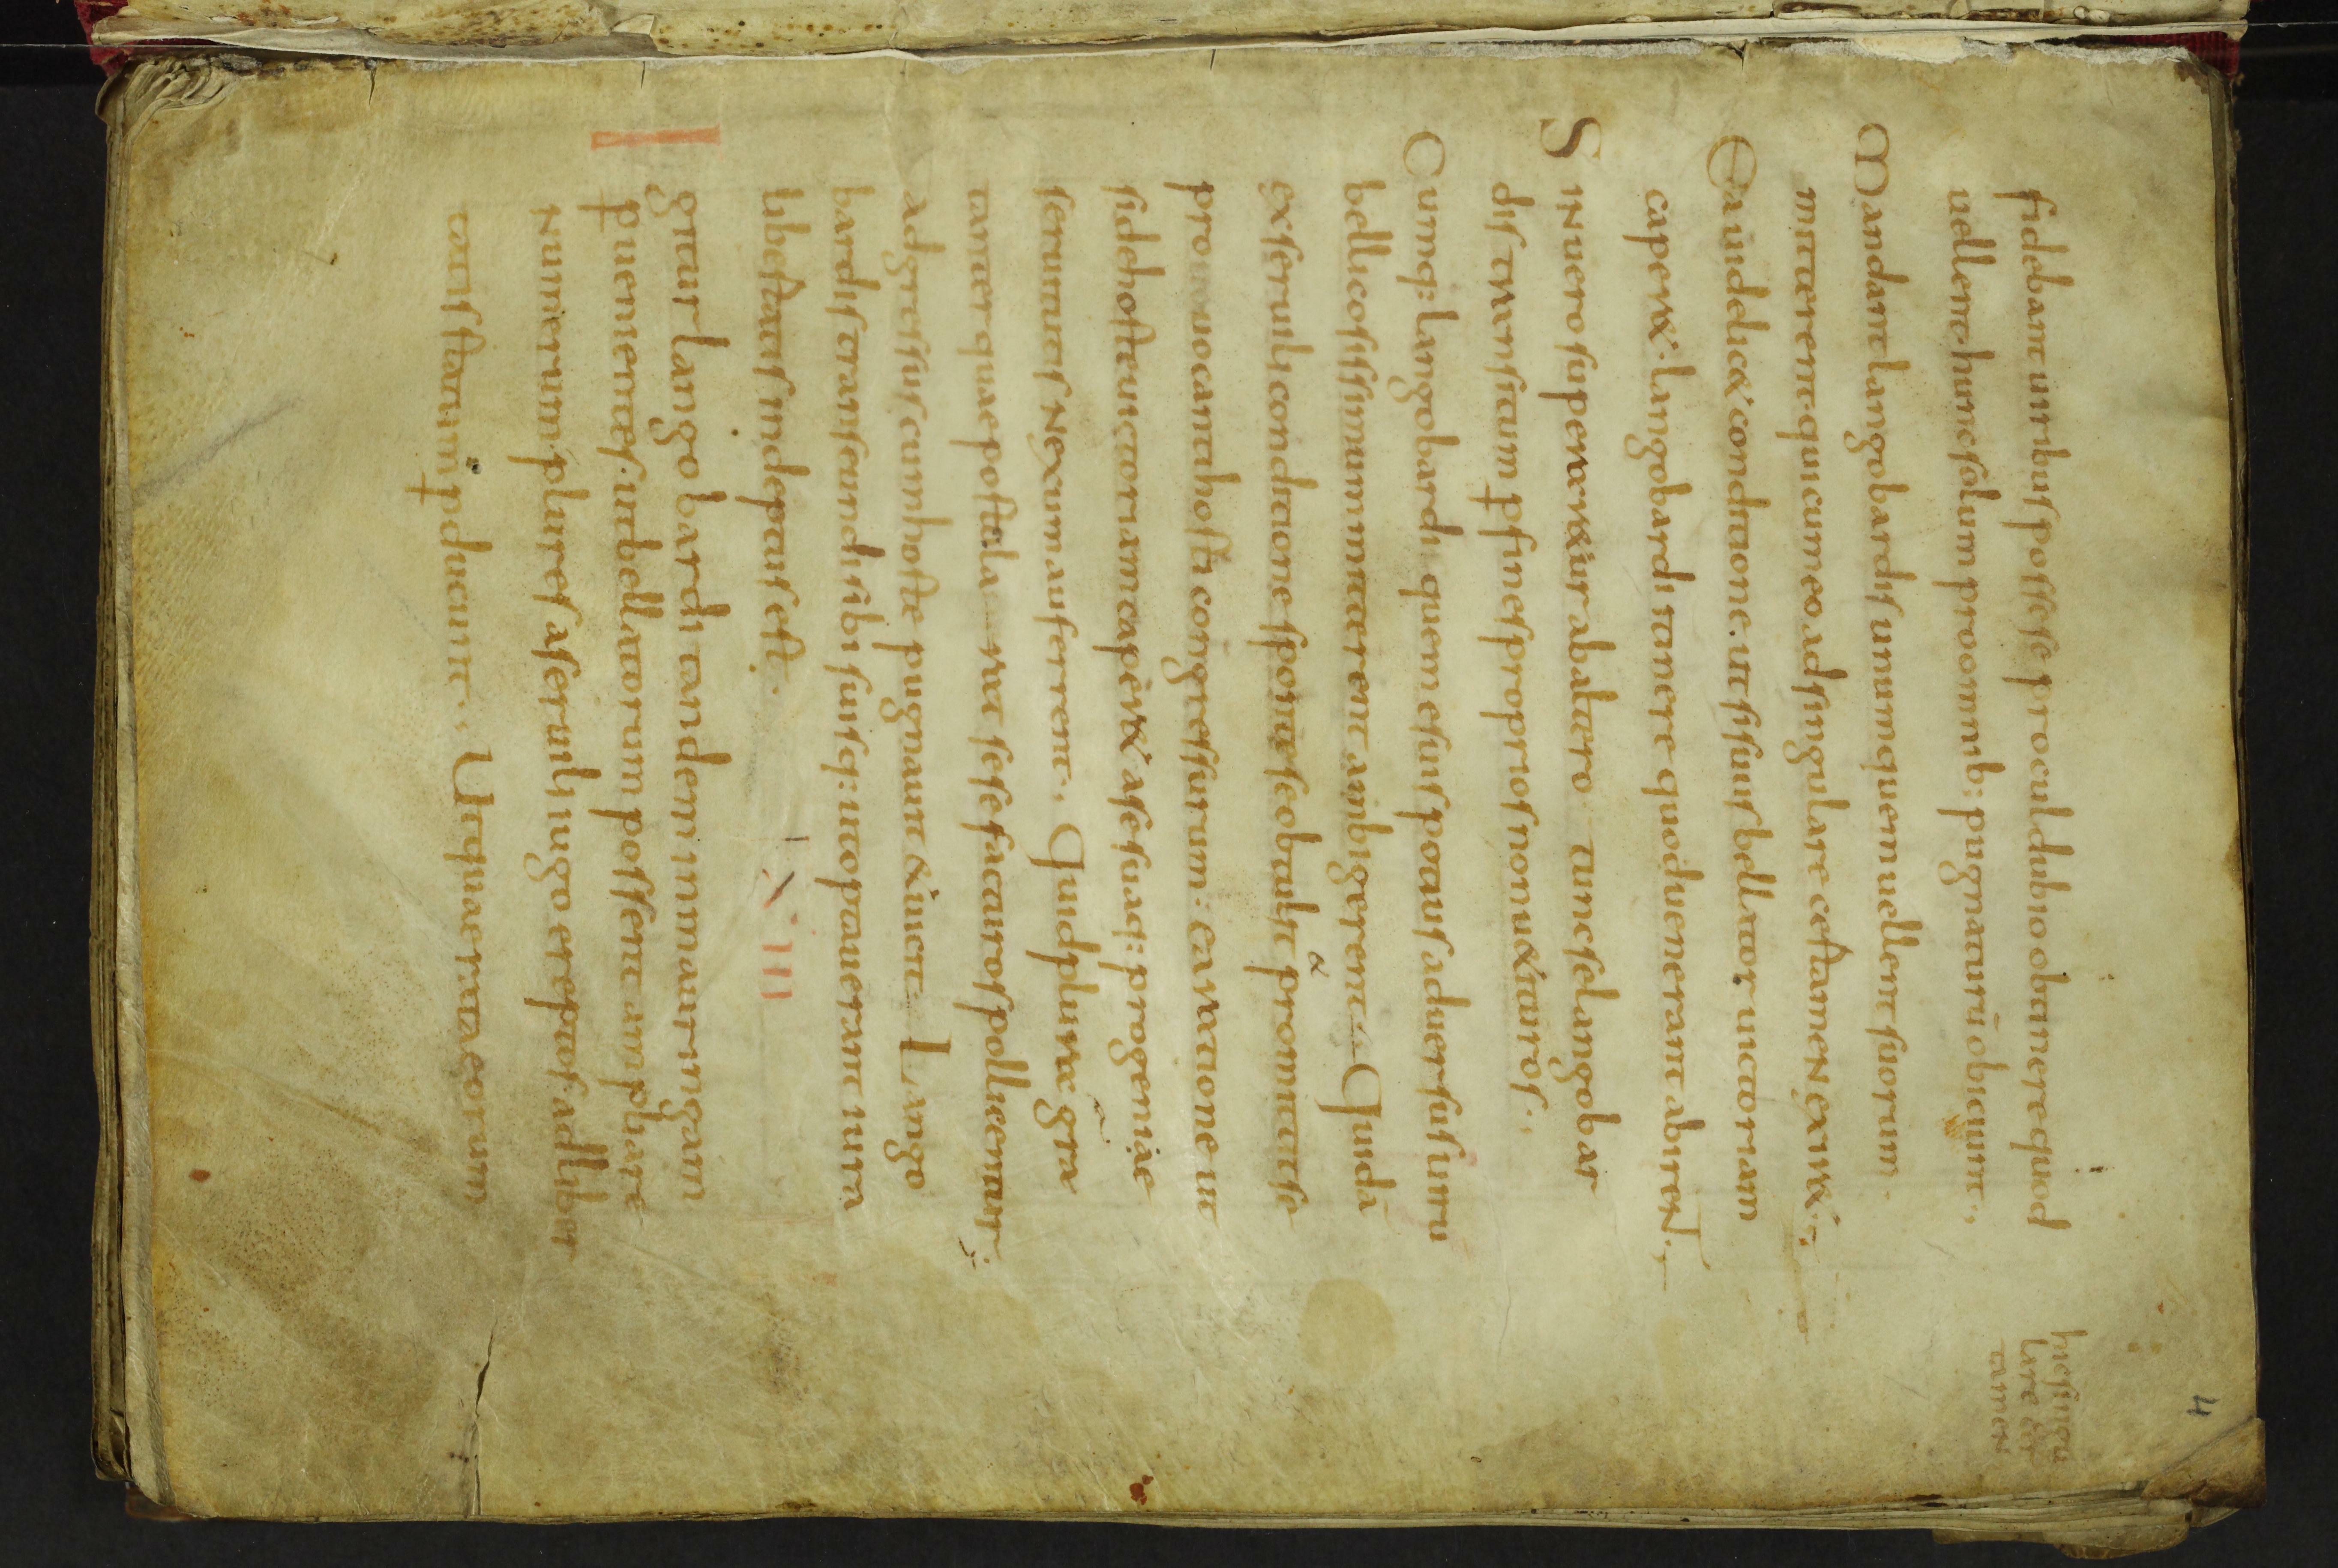 fidebant uiribus posse se procul dubio obtinere quod
uellent. hunc solum pro omnib; pugnaturū obiciunt.,
Mandant langobardis unum quem uellent suorum.
mitterent. qui cum eo ad singulare certamen exir&.,
Ea uidelic& conditione. ut si suis bellator uictoriam
caper&. langobardi itinere quo uenerant abirent.,
Sin uero superar&ur ab altero tunc se langobar
dis transitum p fines proprios non u&ituros.,
Cumq; langobardi quem e suis potius aduersus uirū
bellicosissimum mitterent ambigerent. Quidā
ex seruili conditione sponte se obtulit promittit se
prouocanti hosti congressurum. ea ratione ut
si de hoste uictoriam caper& a se suaq; progeniae
seruitutis nexum auferrent. Quid plura gra
tanter quae postula rat sese facturos pollicentur.;
adgressus cum hoste pugnauit & uicit. Lango
bardis transeundi sibi suisq; ut optauerant iura
libertatis indeptus est.
XIII
Igitur langobardi tandem in mauringam
puenientes. ut bellatorum possent ampliare
numerum. plures a seruili iugo ereptos. ad liber
tatis statum pducunt., Utque rata eorum
hic singu
lare cer
tamen
4